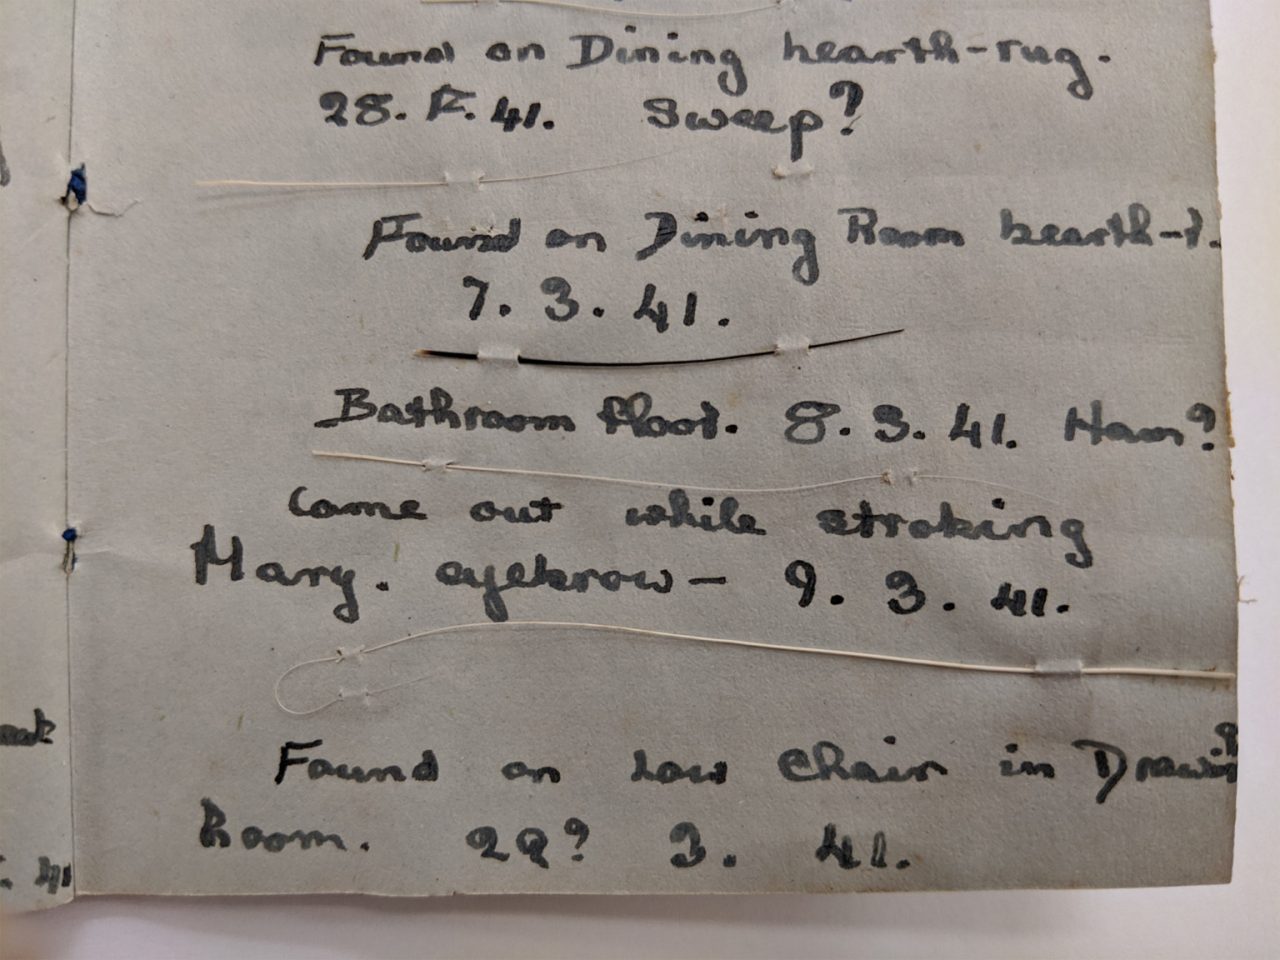 Found on Dining hearth-rug.
28. F. 41. Sweep?
Found on Dining Room hearth-r.
7. 3. 41.
Bathroom floor. 8. 3. 41. Ham?
Came out while stroking
Mary. eyebrow- 9. 3. 41.
Found on Low Chair in Drawing
Room. 22? 3. 41.
. 41